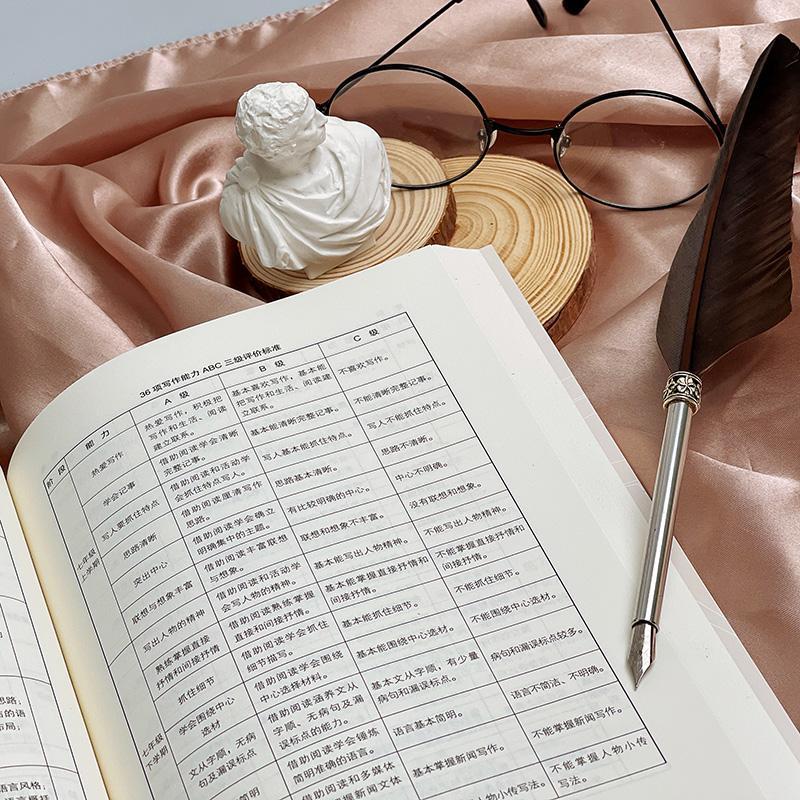 36 项写作能力 ABC 三级评价标准
阶 段
能 力
A 级
B 级
C 级
七年级
上学期
热爱写作
热爱写作，积极把
写作和生活、阅读
建立联系。
基本喜欢写作，基本能
把写作和生活、阅读建
立联系。
不喜欢写作。
学会记事
借助阅读学会清晰
完整记事。
基本能清晰完整记事。
不能清晰完整记事。
写人要抓住特点
借助阅读和活动学
会抓住特点写人。
写人基本能抓住特点。
写人不能抓住特点。
思路清晰
借助阅读厘清写作
思路。
思路基本清晰。
思路不清晰。
突出中心
借助阅读学会确立
明确集中的主题。
有比较明确的中心。
中心不明确。
联想与想象丰富
借助阅读丰富联想
与想象。
联想和想象不丰富。
没有联想和想象。
七年级
下学期
写出人物的精神
借助阅读和活动学
会写人物的精神。
基本能写出人物精神。
不能写出人物精神。
熟练掌握直接
抒情和间接抒情
借助阅读熟练掌握
直接和间接抒情。
基本能掌握直接抒情和
间接抒情。
不能掌握直接抒情和
间接抒情。
抓住细节
借助阅读学会抓住
细节描写。
基本能抓住细节。
不能抓住细节。
学会围绕中心
选材
借助阅读学会围绕
中心选择材料。
基本能围绕中心选材。
不能围绕中心选材。
文从字顺，无病
句及漏标点
借助阅读涵养文从
字顺、无病句及漏
误标点的能力。
基本文从字顺，有少量
病句和漏误标点。
病句和漏误标点较多。
简明
借助阅读学会锤炼
简明准确的语言。
语言基本简明。
语言不简洁、不明确。
借助阅读和多媒体
掌握新闻文体
基本掌握新闻写作。
不能掌握新闻写作。
物小传写法。
不能掌握人物小传
写法。